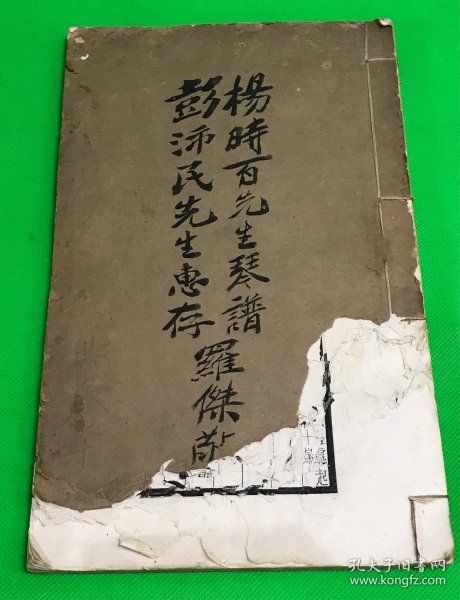 楊時百先生琴譜
彭沛民先生惠存
羅傑
孔夫子旧书网
www.kongfz.com